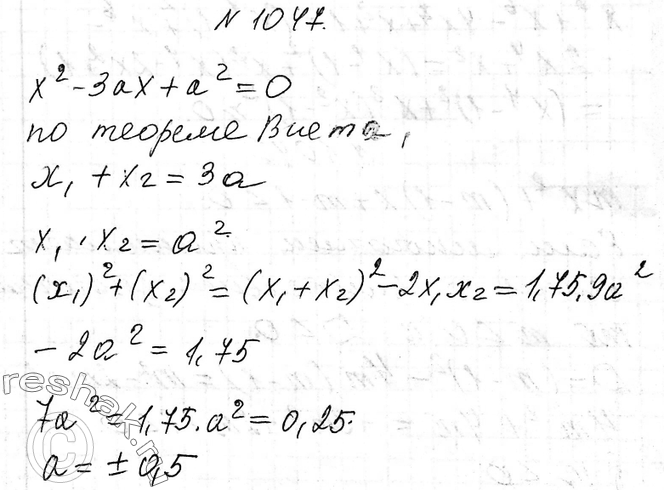 N 1047.
x² - 3ax + a² = 0
по теореме Виета,
x₁ + x₂ = 3a
x₁ · x₂ = a².
(x₁)² + (x₂)² = (x₁ + x₂)² - 2x₁x₂ = 1,75. 9a²
- 2a² = 1,75
7a² = 1,75. a² = 0,25.
a = ± 0,5
reshak.ru